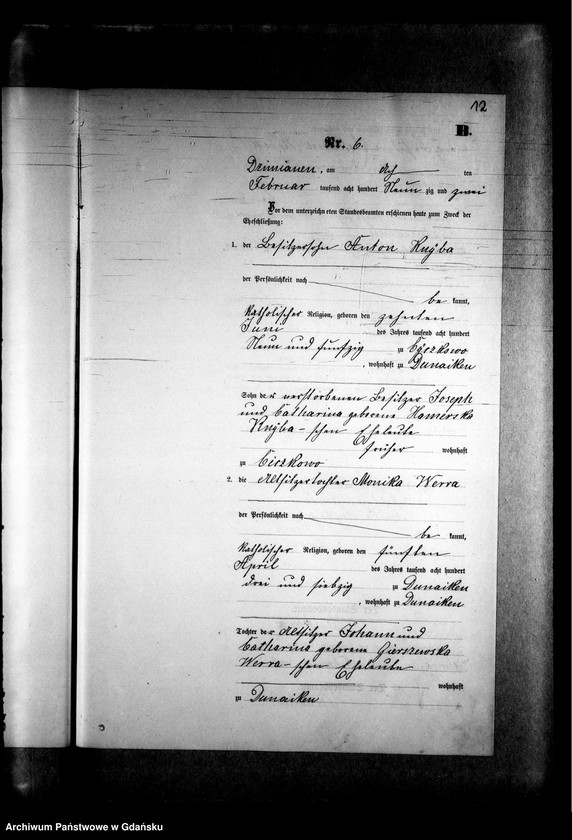 12
B.
Nr. 6.
Dzimianen, am acht ten
Februar tausend acht hundert Neun zig und zwei
Vor dem unterzeichneten Standesbeamten erschienen heute zum Zweck der
Eheschließung:
1. der Besitzersohn Anton Knyba
der Persönlichkeit nach
be kannt,
katholischer Religion, geboren den zehnten
Juni des Jahres tausend acht hundert
Neun und fünfzig zu
, wohnhaft zu Dunaiken
Sohn der verstorbenen Besitzer Joseph
und Catharina geborene Hamerska
Knyba-schen Eheleute
früher wohnhaft
zu
2. die Altsitzertochter Monika Werra
der Persönlichkeit nach
be kannt,
katholischer Religion, geboren den fünften
April des Jahres tausend acht hundert
drei und siebzig zu Dunaiken
, wohnhaft zu Dunaiken
Tochter der Altsitzer Johann und
Catharina geborene Gierszewska
Werra-schen Eheleute
wohnhaft
zu Dunaiken
Archiwum Państwowe w Gdańsku